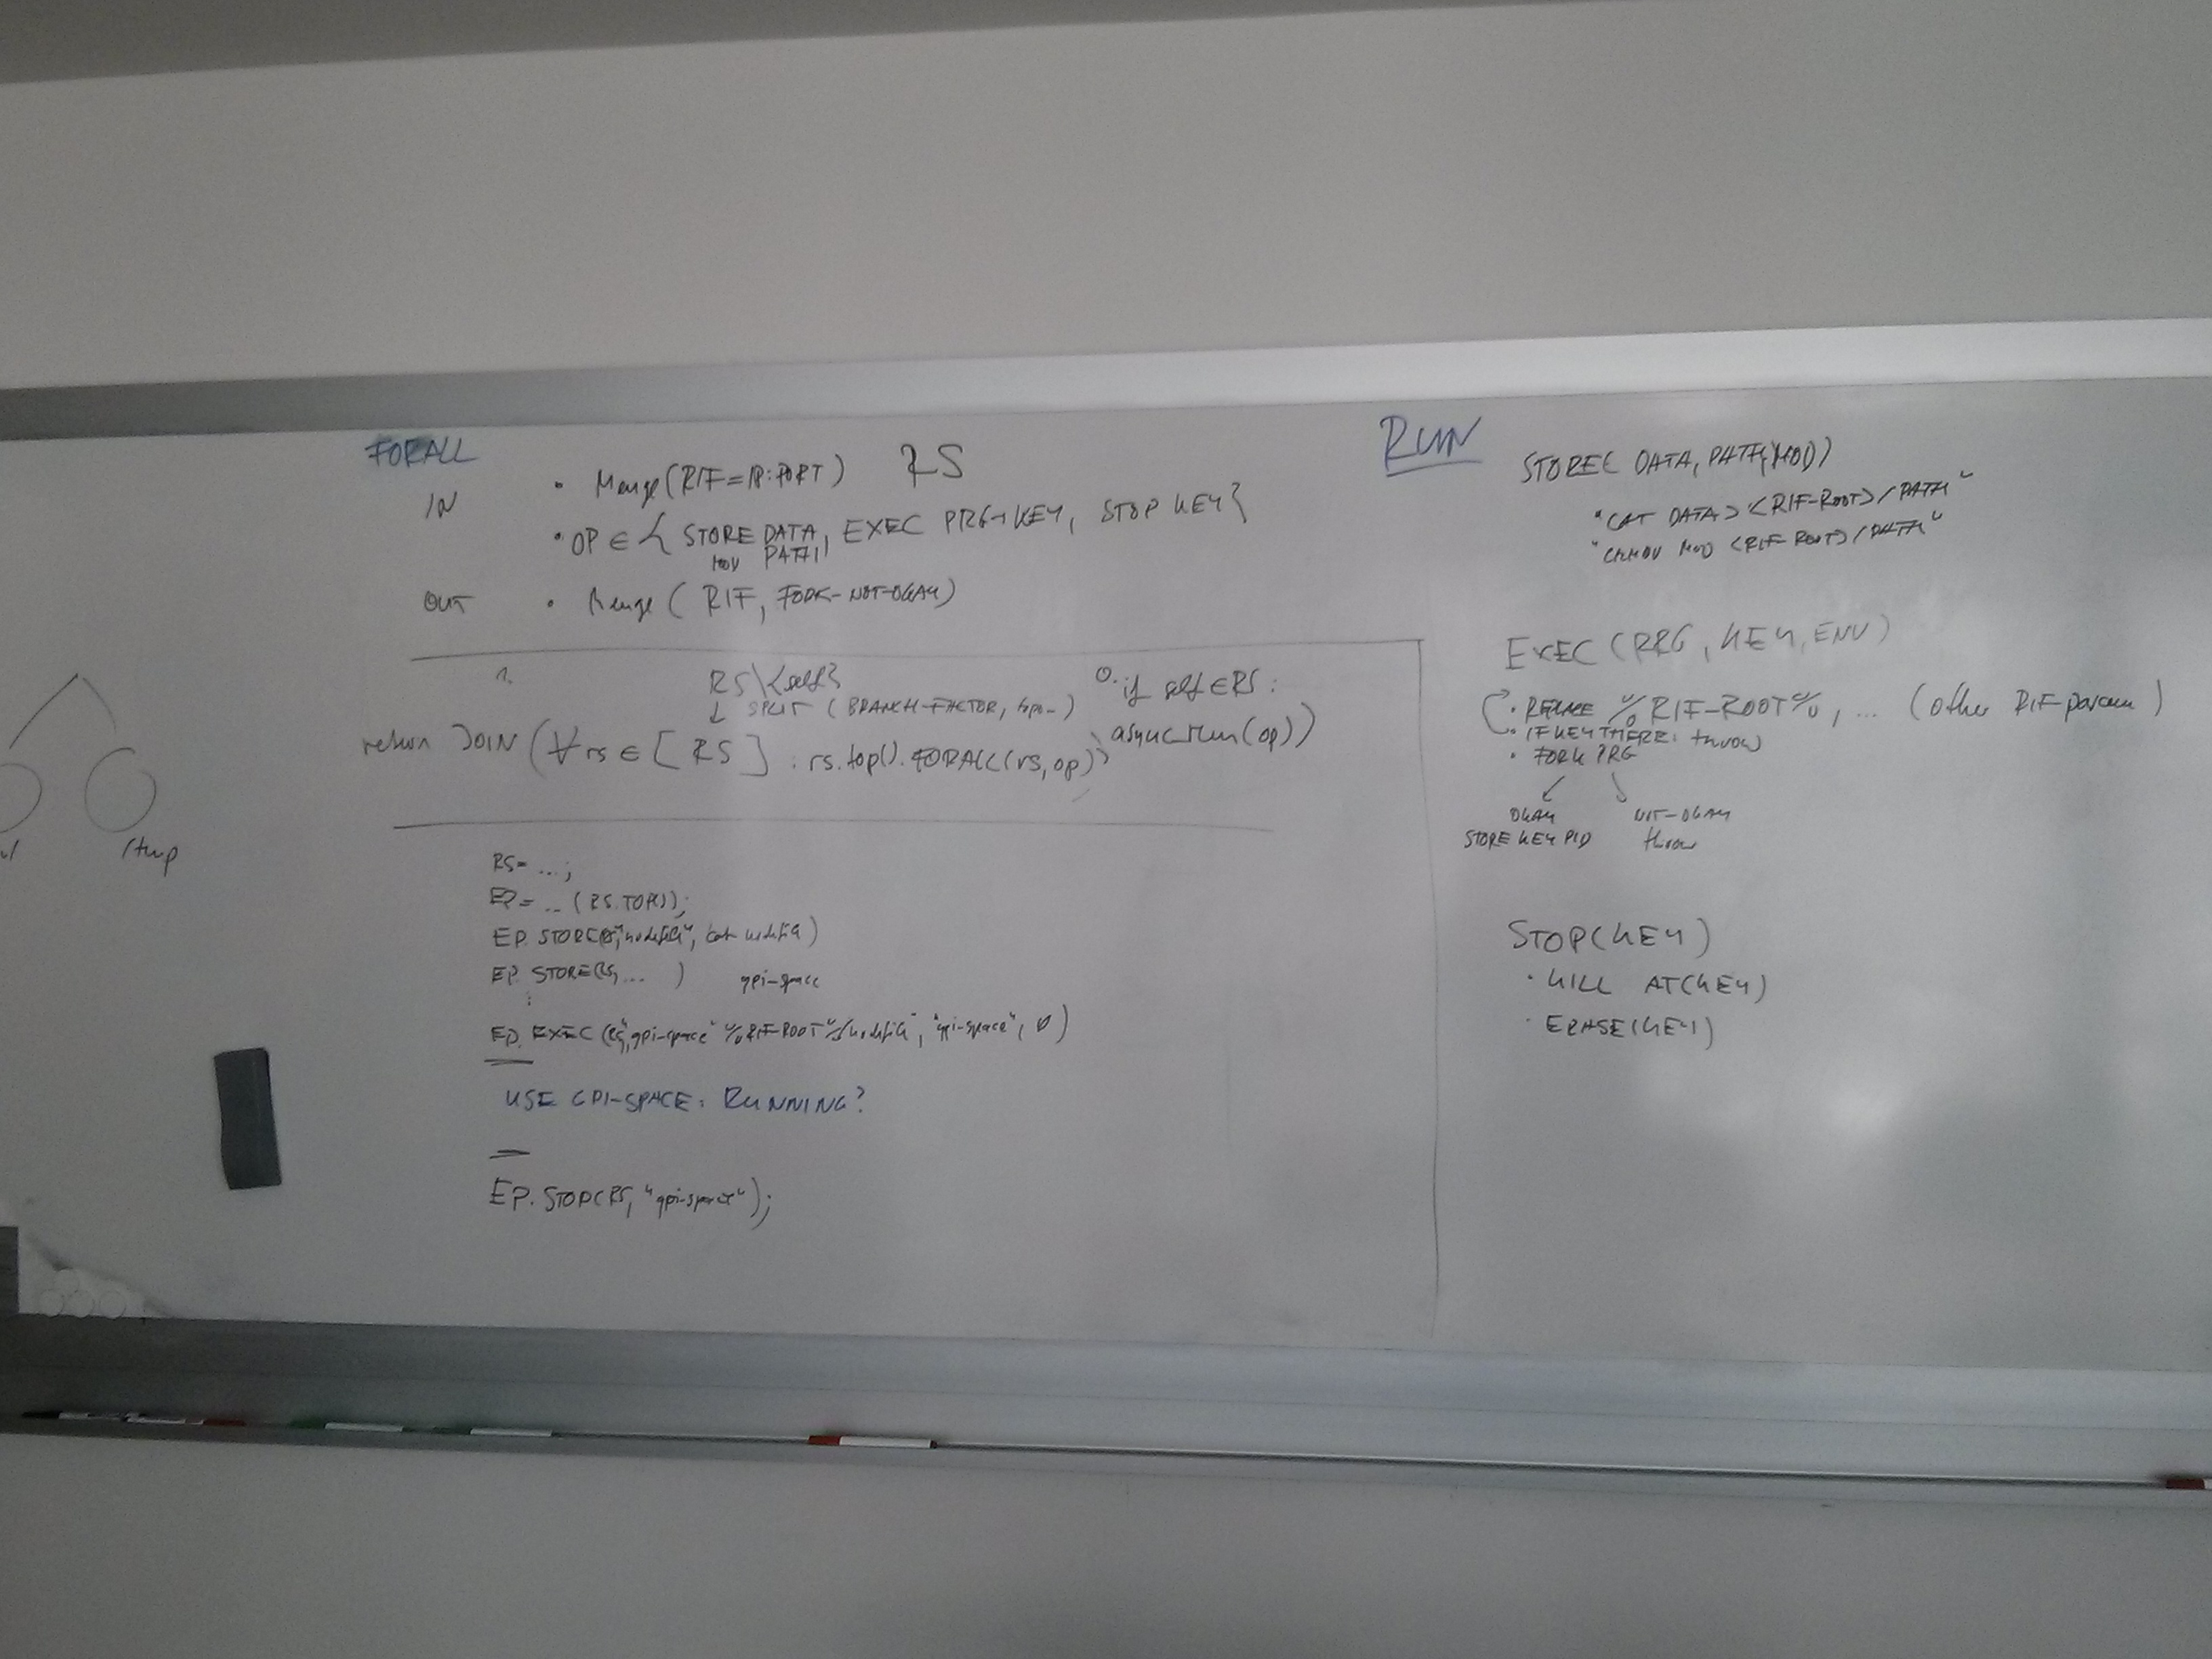 FORALL
IN
• Menge (RIF = IP:PORT) RS
• OP ∈ { STORE DATA, EXEC PRG→KEY, STOP KEY }
MOD PATH
OUT • Menge ( RIF, FORK-NOT-OKAY)
1. RS\{self} 0. if self ∈ RS :
↓ SPLIT ( BRANCH-FACTOR, topo- )
return JOIN ( ∀ rs ∈ [ RS ] : rs.top().FORALL(rs, op) , async run(op))
/tmp
RS= ...;
EP= ... (RS.TOP());
EP. STORE(RS, "nodefile", cat nodefile)
EP. STORE(RS, ... ) gpi-space
⋮
EP. EXEC (RS, "gpi-space" %RIF-ROOT%/nodefile", "gpi-space", ∅)
USE GPI-SPACE: RUNNING?
EP. STOP(RS, "gpi-space");
RUN
STORE( DATA, PATH, MOD)
"CAT DATA > <RIF-ROOT>/PATH"
"CHMOD MOD <RIF-ROOT>/PATH"
EXEC (PRG, KEY, ENV)
• REPLACE %RIF-ROOT%, ... (other RIF-param)
• IF KEY THERE: throw
• FORK PRG
OKAY NOT-OKAY
STORE KEY PID throw
STOP(KEY)
• KILL AT(KEY)
• ERASE(KEY)